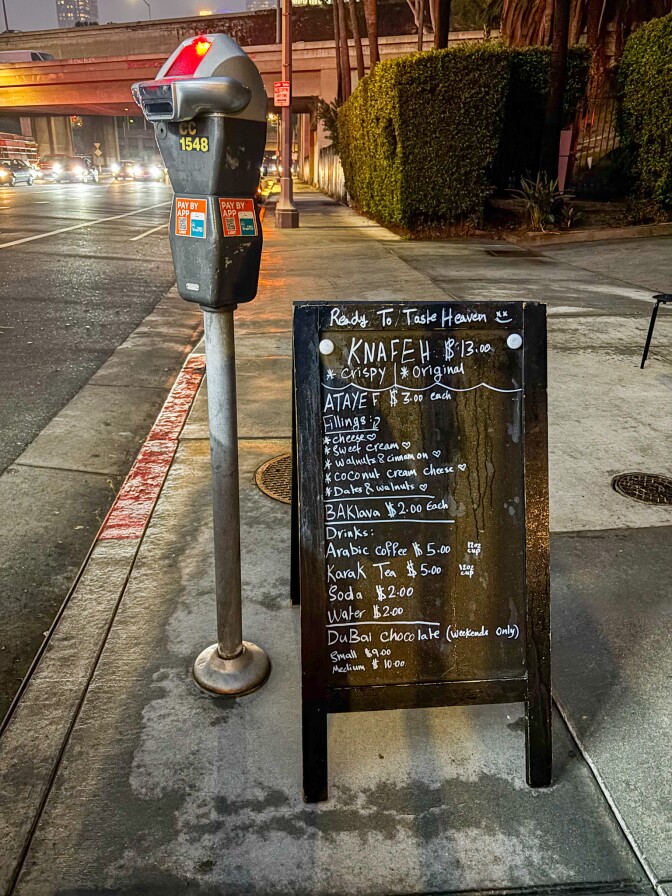 CC
1548
PAY BY
APP
PAY BY
APP
Ready To Taste Heaven
KNAFEH $13.00
* Crispy | * Original
ATAYEF $3.00 each
Fillings:
* cheese ♡
* Sweet cream ♡
* walnuts & cinnamon ♡
* coconut cream cheese ♡
* Dates & walnuts ♡
BAKlava $2.00 Each
Drinks:
Arabic coffee $5.00 12oz cup
Karak Tea $5.00 12oz cup
Soda $2.00
Water $2.00
DuBai chocolate (weekends only)
Small $9.00
Medium $10.00